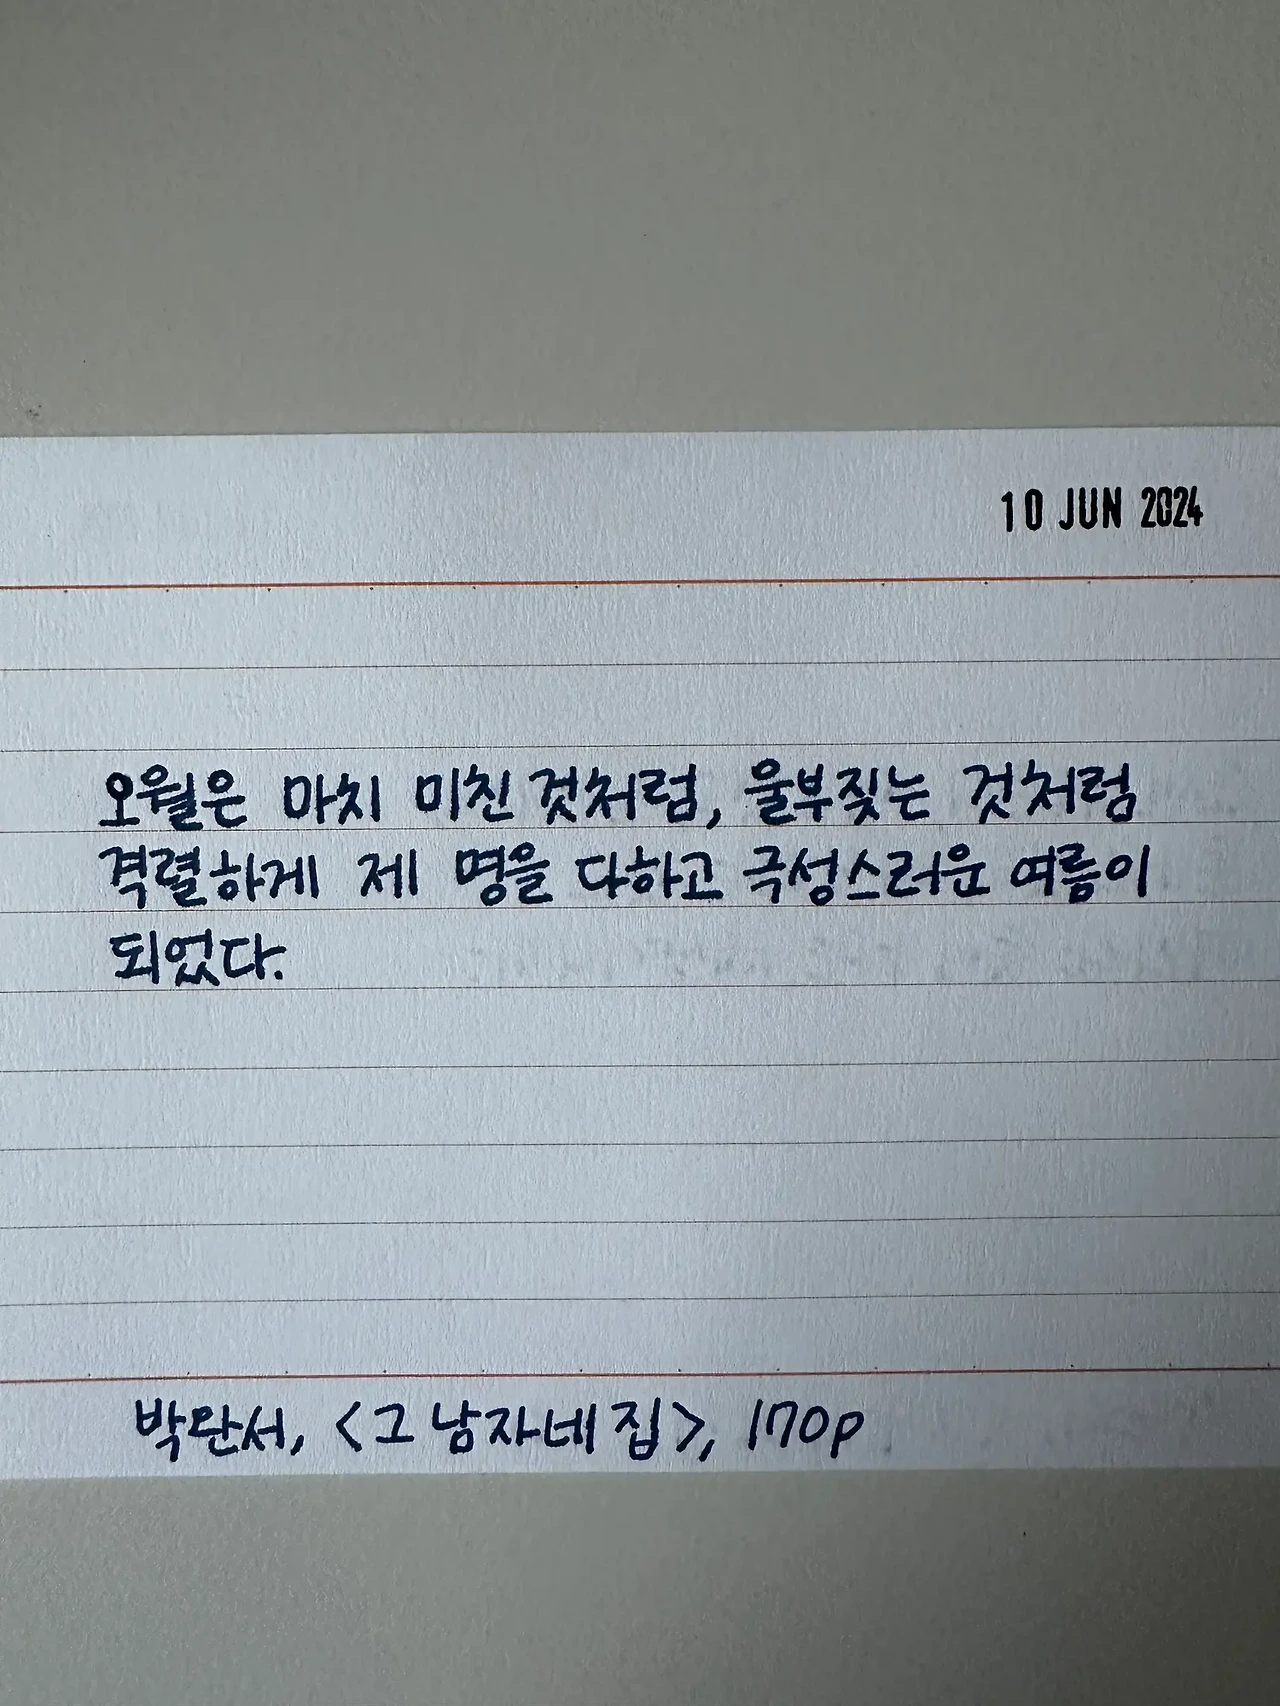 10 JUN 2024
오월은 마치 미친 것처럼, 울부짖는 것처럼
격렬하게 제 명을 다하고 극성스러운 여름이
되었다.
박완서, <그 남자네 집>, 170p